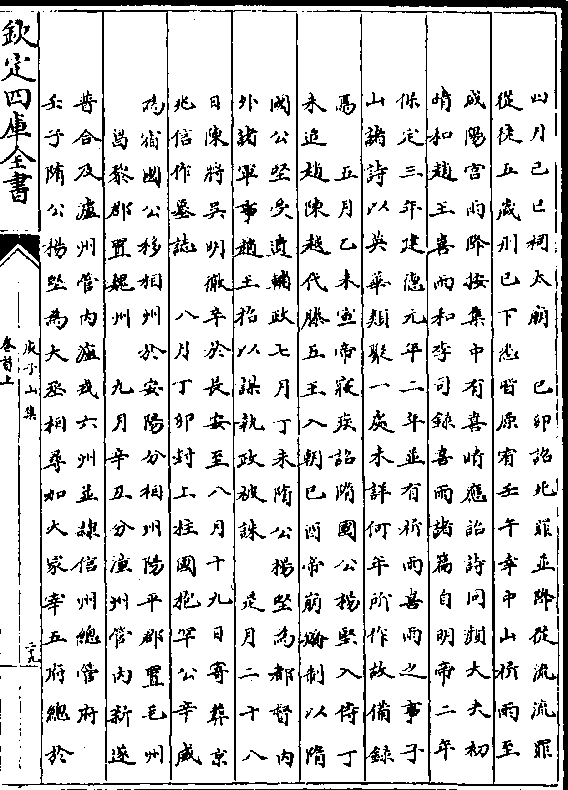 四月己巳祠太廟 己卯詔死罪並降從流流罪
從徒五歲刑已下悉皆原宥壬午幸中山祈雨至
咸陽宮雨降按集中有喜晴應詔詩同顔大夫初
晴和趙王喜雨和李司錄喜雨諸篇自明帝二年
保定三年建德元年二年並有祈雨喜雨之事子
山諸詩以英華類聚一處未詳何年所作故備錄
焉 五月乙未宣帝寢疾詔隋國公楊堅入侍丁
未追趙陳越代滕五王入朝己酉帝崩矯制以隋
國公堅受遺輔政七月丁未隋公楊堅為都督内
外諸軍事趙王招以謀執政被誅 是月二十八
日陳將吳明徹卒於長安至八月十九日寄葬京
兆信作墓誌 八月丁卯封上柱國枹罕公辛威
為宿國公移相州於安陽分相州陽平郡置毛州
昌黎郡置魏州 九月辛丑分潼州管内新遂
普合及瀘州管内瀘戎六州並隸信州總管府
壬子隋公楊堅為大丞相尋加大冢宰五府總於
欽定四庫全書
庾子山集
卷首上
二十九